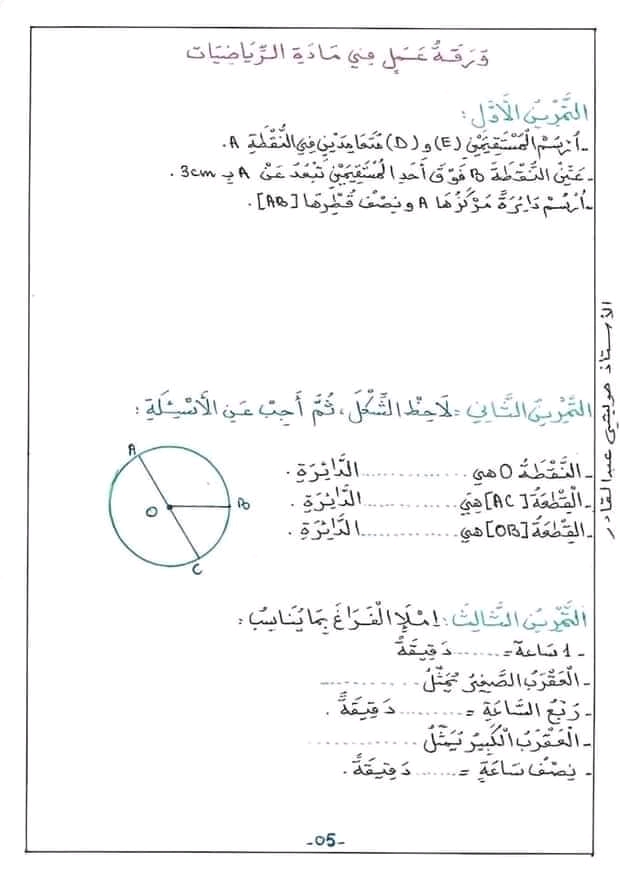 ورقة عمل في مادة الرياضيات
التمرين الأول:
- أرسم المستقيمين (E) و (D) متعامدين في النقطة A.
- عين النقطة B فوق أحد المستقيمين تبعد عن A بـ 3cm.
- أرسم دائرة مركزها A ونصف قطرها [AB].
التمرين الثاني: لاحظ الشكل، ثم أجب عن الأسئلة:
- النقطة O هي .............. الدائرة.
- القطعة [AC] هي .............. الدائرة.
- القطعة [OB] هي .............. الدائرة.
A
O
B
C
التمرين الثالث: املإ الفراغ بما يناسب:
- 1 ساعة = ....... دقيقة
- العقرب الصغير يمثل ..............
- ربع الساعة = ......... دقيقة.
- العقرب الكبير يمثل ..............
- نصف ساعة = ....... دقيقة.
-05-
الأستاذ هويشي عبد القادر